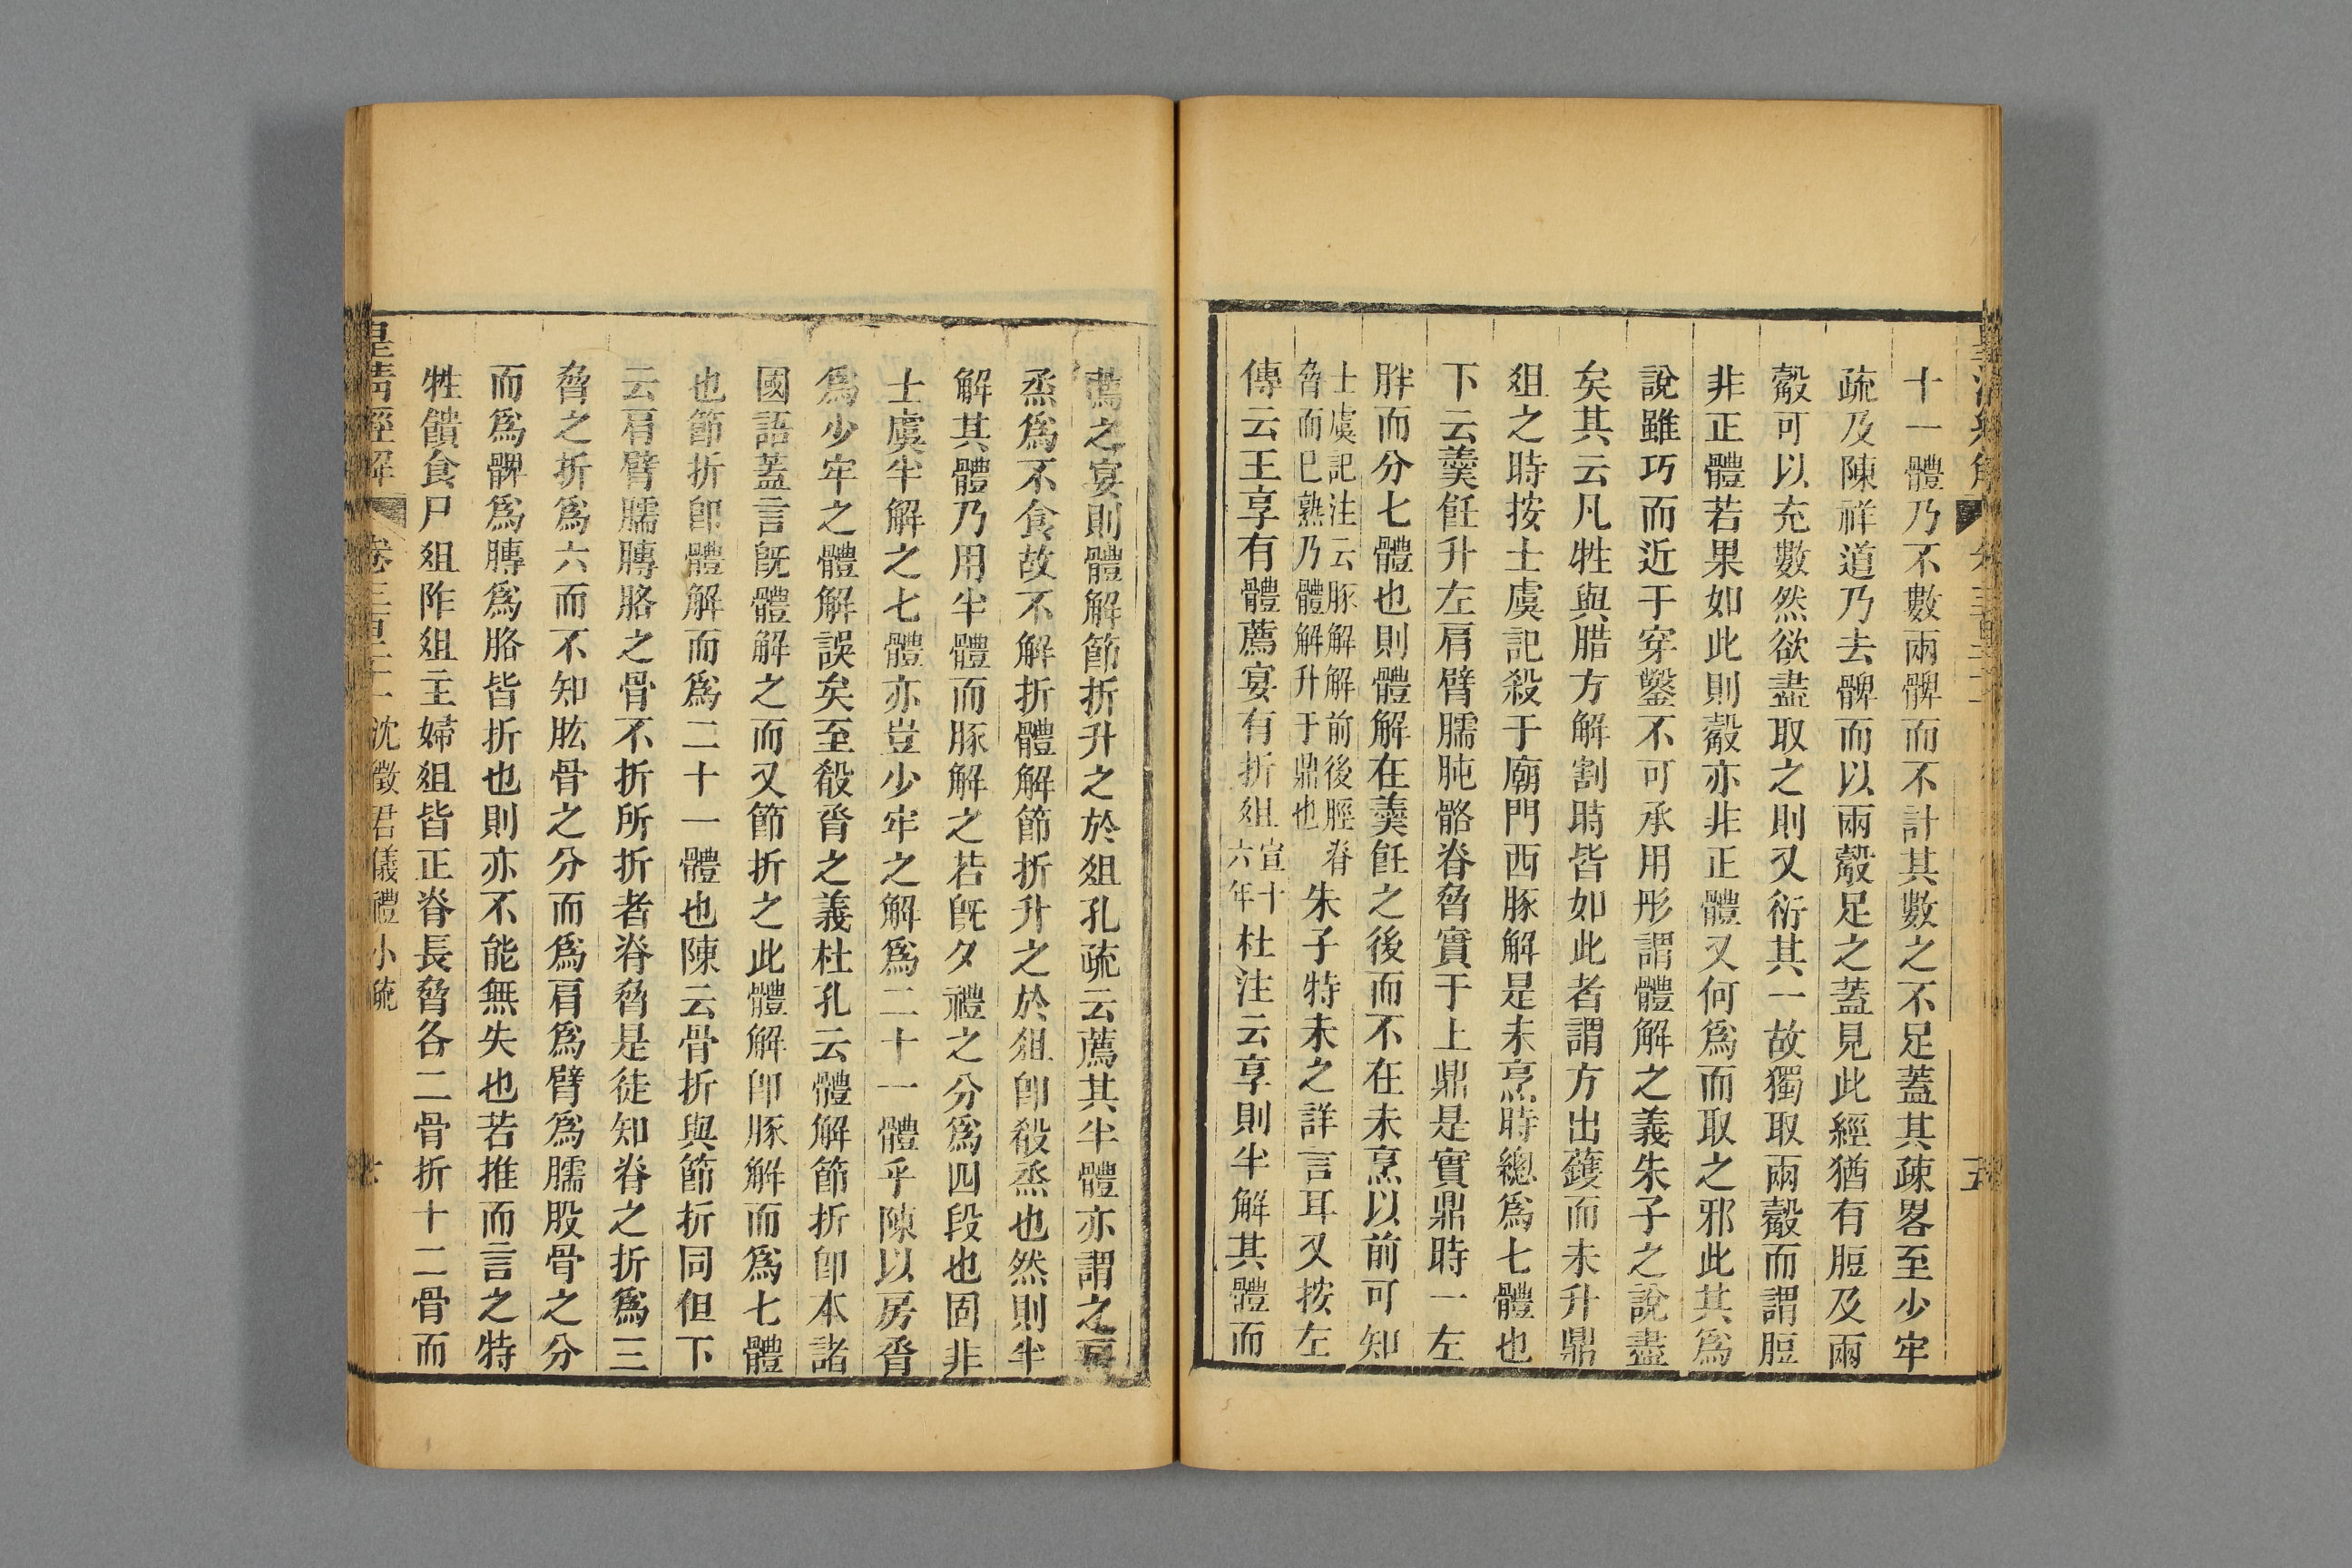 十一體乃不數兩髀而不計其數之不足蓋其疎畧至少牢
疏及陳祥道乃去髀而以兩觳足之蓋見此經猶有脰及兩
觳可以充數然欲盡取之則又衍其一故獨取兩觳而謂脰
非正體若果如此則觳亦非正體又何爲而取之邪此其爲
說雖巧而近于穿鑿不可承用彤謂體解之義朱子之說盡
矣其云凡牲與腊方解割時皆如此者謂方出鑊而未升鼎
俎之時按士虞記殺于廟門西豚解是未烹時總爲七體也
下云羹飪升左肩臂臑肫骼脊脅實于上鼎是實鼎時一左
胖而分七體也則體解在羹飪之後而不在未烹以前可知
士虞記注云豚解解前後脛脊
脅而巳熟乃體解升于鼎也
朱子特未之詳言耳又按左
傳云王享有體薦宴有折俎宣十六年杜注云享則半解其體而
薦之宴則體解節折升之於俎孔疏云薦其半體亦謂之房
烝爲不食故不解折體解節折升之於俎卽殺烝也然則半
解其體乃用半體而豚解之若旣夕禮之分爲四段也固非
士虞半解之七體亦豈少牢之解爲二十一體乎陳以房脀
爲少牢之體解誤矣至殽脀之義杜孔云體解節折卽本諸
國語蓋言旣體解之而又節折之此體解卽豚解而爲七體
也節折卽體解而爲二十一體也陳云骨折與節折同但下
云肩臂臑膞胳之骨不折所折者脊脅是徒知脊之折爲三
脅之折爲六而不知肱骨之分而爲肩爲臂爲臑股骨之分
而爲髀爲膞爲胳皆折也則亦不能無失也若推而言之特
牲饋食尸俎阼俎主婦俎皆正脊長脅各二骨折十二骨而
皇清經解 卷三百二十 沈徵君儀禮小疏